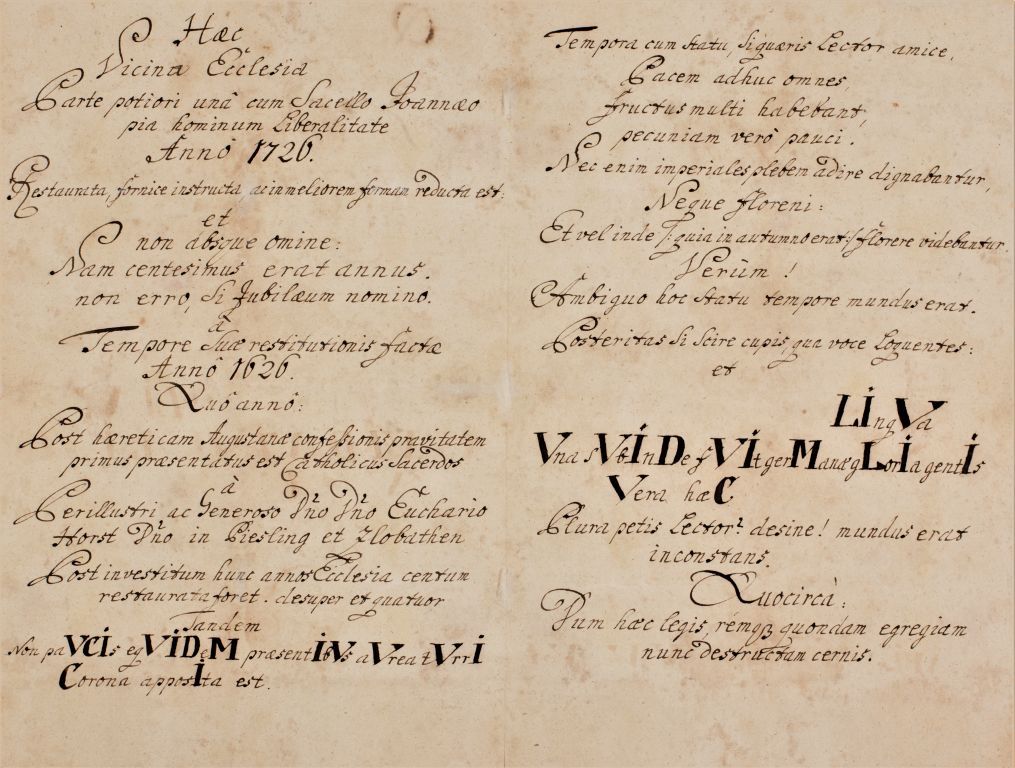 Hæc
Vicina Ecclesia
Parte potiori unâ cum Sacello Joannæo
pia hominum Liberalitate
Annô 1726.
Restaurata, fornice instructa ac in meliorem formam reducta est:
et
non absque omine:
Nam centesimus erat annus.
non erro, si Jubilæum nomino.
â
Tempore suæ restitutionis factæ
Annô 1626.
Quô annô:
Post hæreticam Augustanæ confessionis pravitatem
primus præsentatus est Catholicus Sacerdos
à
Perillustri ac Generoso Dño Dño Euchario
Horst Dño in Piesling et Zlobathen
Post investitum hunc annos Ecclesia centum
restaurata foret. desuper et quatuor
Tandem
Non paVCIs eqVIDeM præsentIbVs aVrea tVrrI
Corona apposIta est.
Tempora cum statu, si quæris Lector amice,
Pacem adhuc omnes,
fructus multi habebant,
pecuniam verô pauci.
Nec enim imperiales plebem adire dignabantur,
Neque floreni:
Et vel inde /: quia in autumno erat :/ florere videbantur.
Verùm!
Ambiguo hoc statu tempore mundus erat.
Posteritas si scire cupis, qua voce Loquentes:
et
LIngVa
Vna sVb InDe fVIt gerManæ gLorIa gentIs
Vera hæC
Plura petis Lector? desine! mundus erat
inconstans.
Quocircà:
Dum hæc legis, rémqz quondam egregiam
nunc destructam cernis.